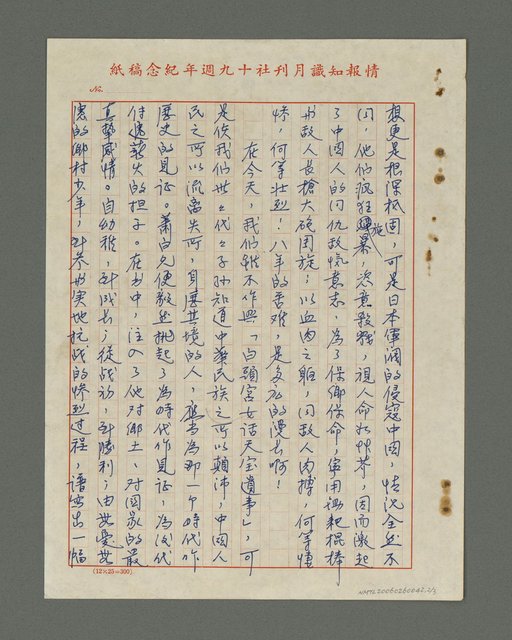 情報知識月刊社十九週年紀念稿紙
No.
想更是根深柢固，可是日本軍閥的侵寇中國，情況全然不
同，他們瘋狂施暴，恣意殺戮，視人命如草芥，因而激起
了中國人的同仇敵愾意志，為了保鄉保命，寧用鋤耙棍棒
與敵人長槍大砲周旋；以血肉之軀，同敵人肉搏，何等悽
慘，何等壯烈！八年的苦難，是多麼的漫長啊！
在今天，我們雖不作興「白頭宮女話天寶遺事」，可
是後我們世世代代子孫知道中華民族之所以顛沛，中國人
民之所以流離失所，身歷其境的人，應當為那一個時代作
歷史的見證。蕭白兄便毅然挑起了為時代作見證，為後代
傳遞薪火的担子。在書中，注入了他對鄉土、對國家的最
真摯感情。自幼稚，到成長；從戰初，到勝利；由無憂無
慮的鄉村少年，到參與實地抗戰的慘烈過程，譜寫出一幅
(12×25=300)
NMTL20060260042.2/3